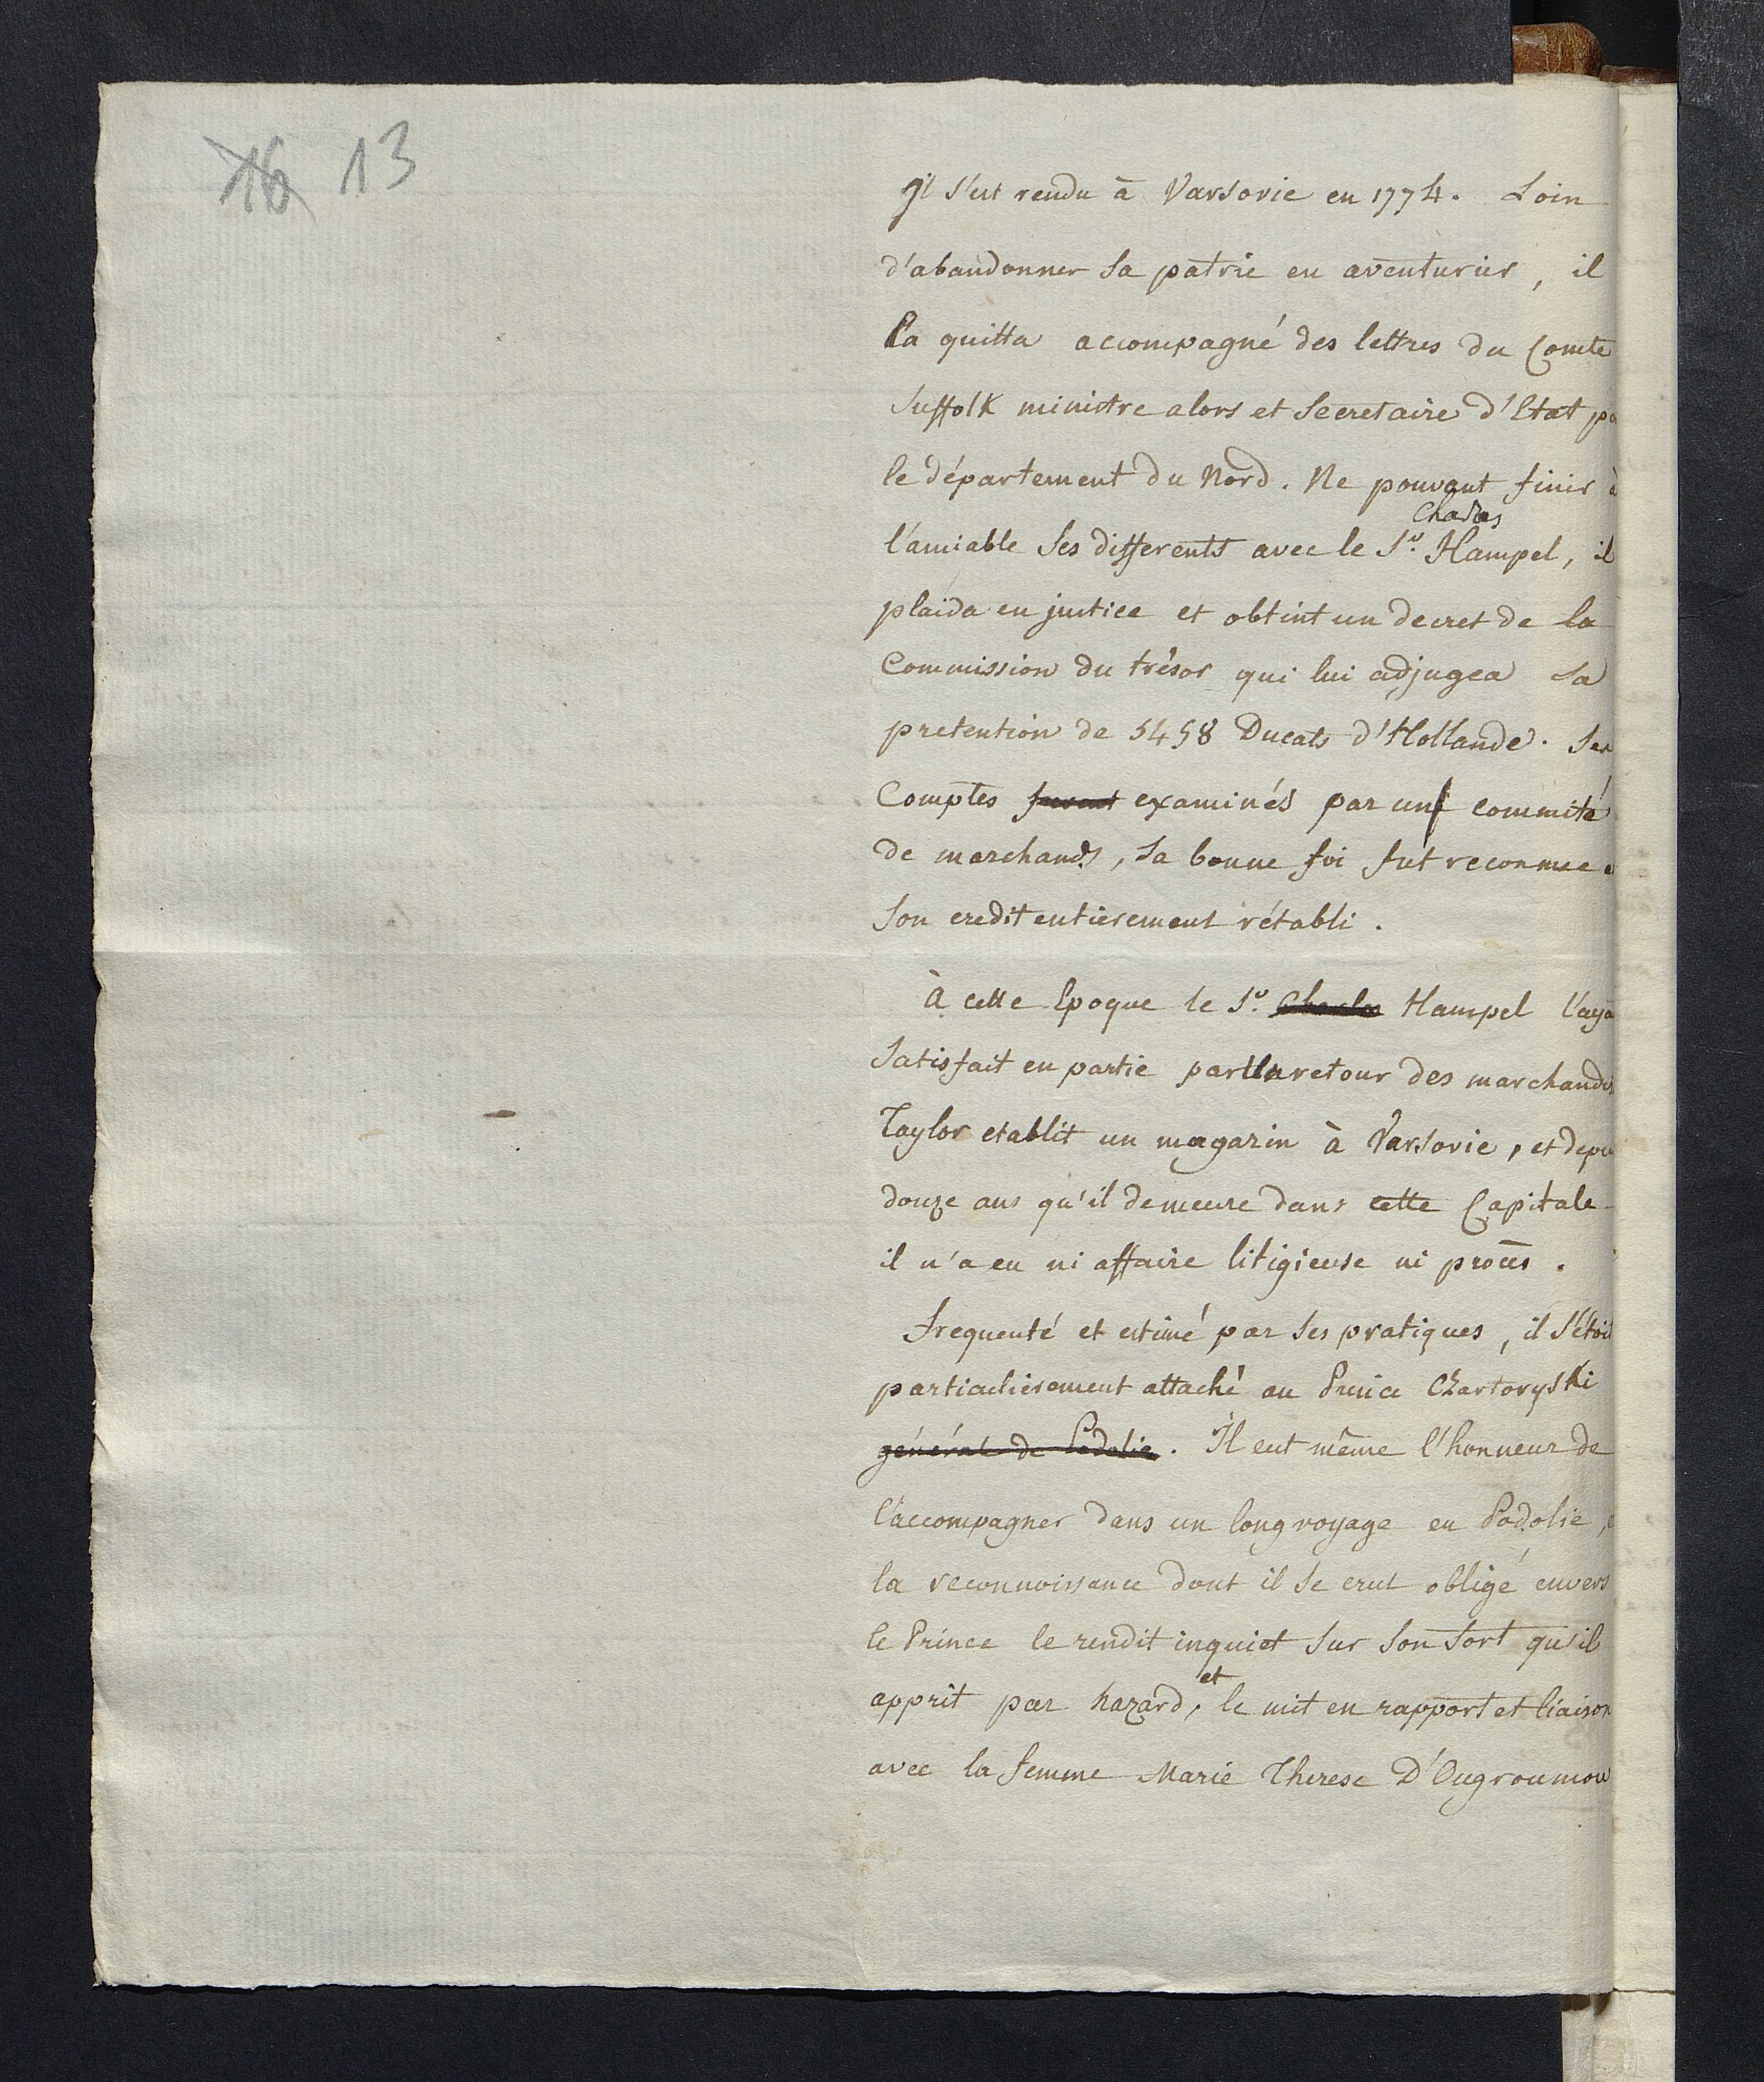 16 13
Il s'est rendu à Varsovie en 1774. Loin
d'abandonner sa patrie en aventurier, il
la quitta accompagné des lettres du Comte
Suffolk ministre alors et Secretaire d'Etat po
le département du Nord. Ne pouvant finir à
Charles
l'amiable ses differents avec le Sr. Hampel, il
plaida en justice et obtint un decret de la
Commission du trèsor qui lui adjugea sa
pretention de 5458 Ducats d'Hollande. Ses
Comptes furent examinés par un commité
de marchands, sa bonne foi fut reconnue e
son credit entierement rétabli.
à cette Epoque le Sr. Charles Hampel l'aya
satisfait en partie par le retour des marchandis
Taylor etablit un magazin à Varsovie, et depu
douze ans qu'il demeure dans cette Capitale
il n'a eu ni affaire litigieuse ni procès.
frequenté et estimé par ses pratiques, il s'étoit
particulierement attaché au Prince Czartoryski
général de Podolie. Il eut même l'honneur de
l'accompagner dans un long voyage en Podolie, e
la reconnoissance dont il se crut obligé envers
le Prince le rendit inquiet sur son sort qu'il
et
apprit par hazard, le mit en rapport et liaison
avec la femme Marie Therese D'Ougroumow